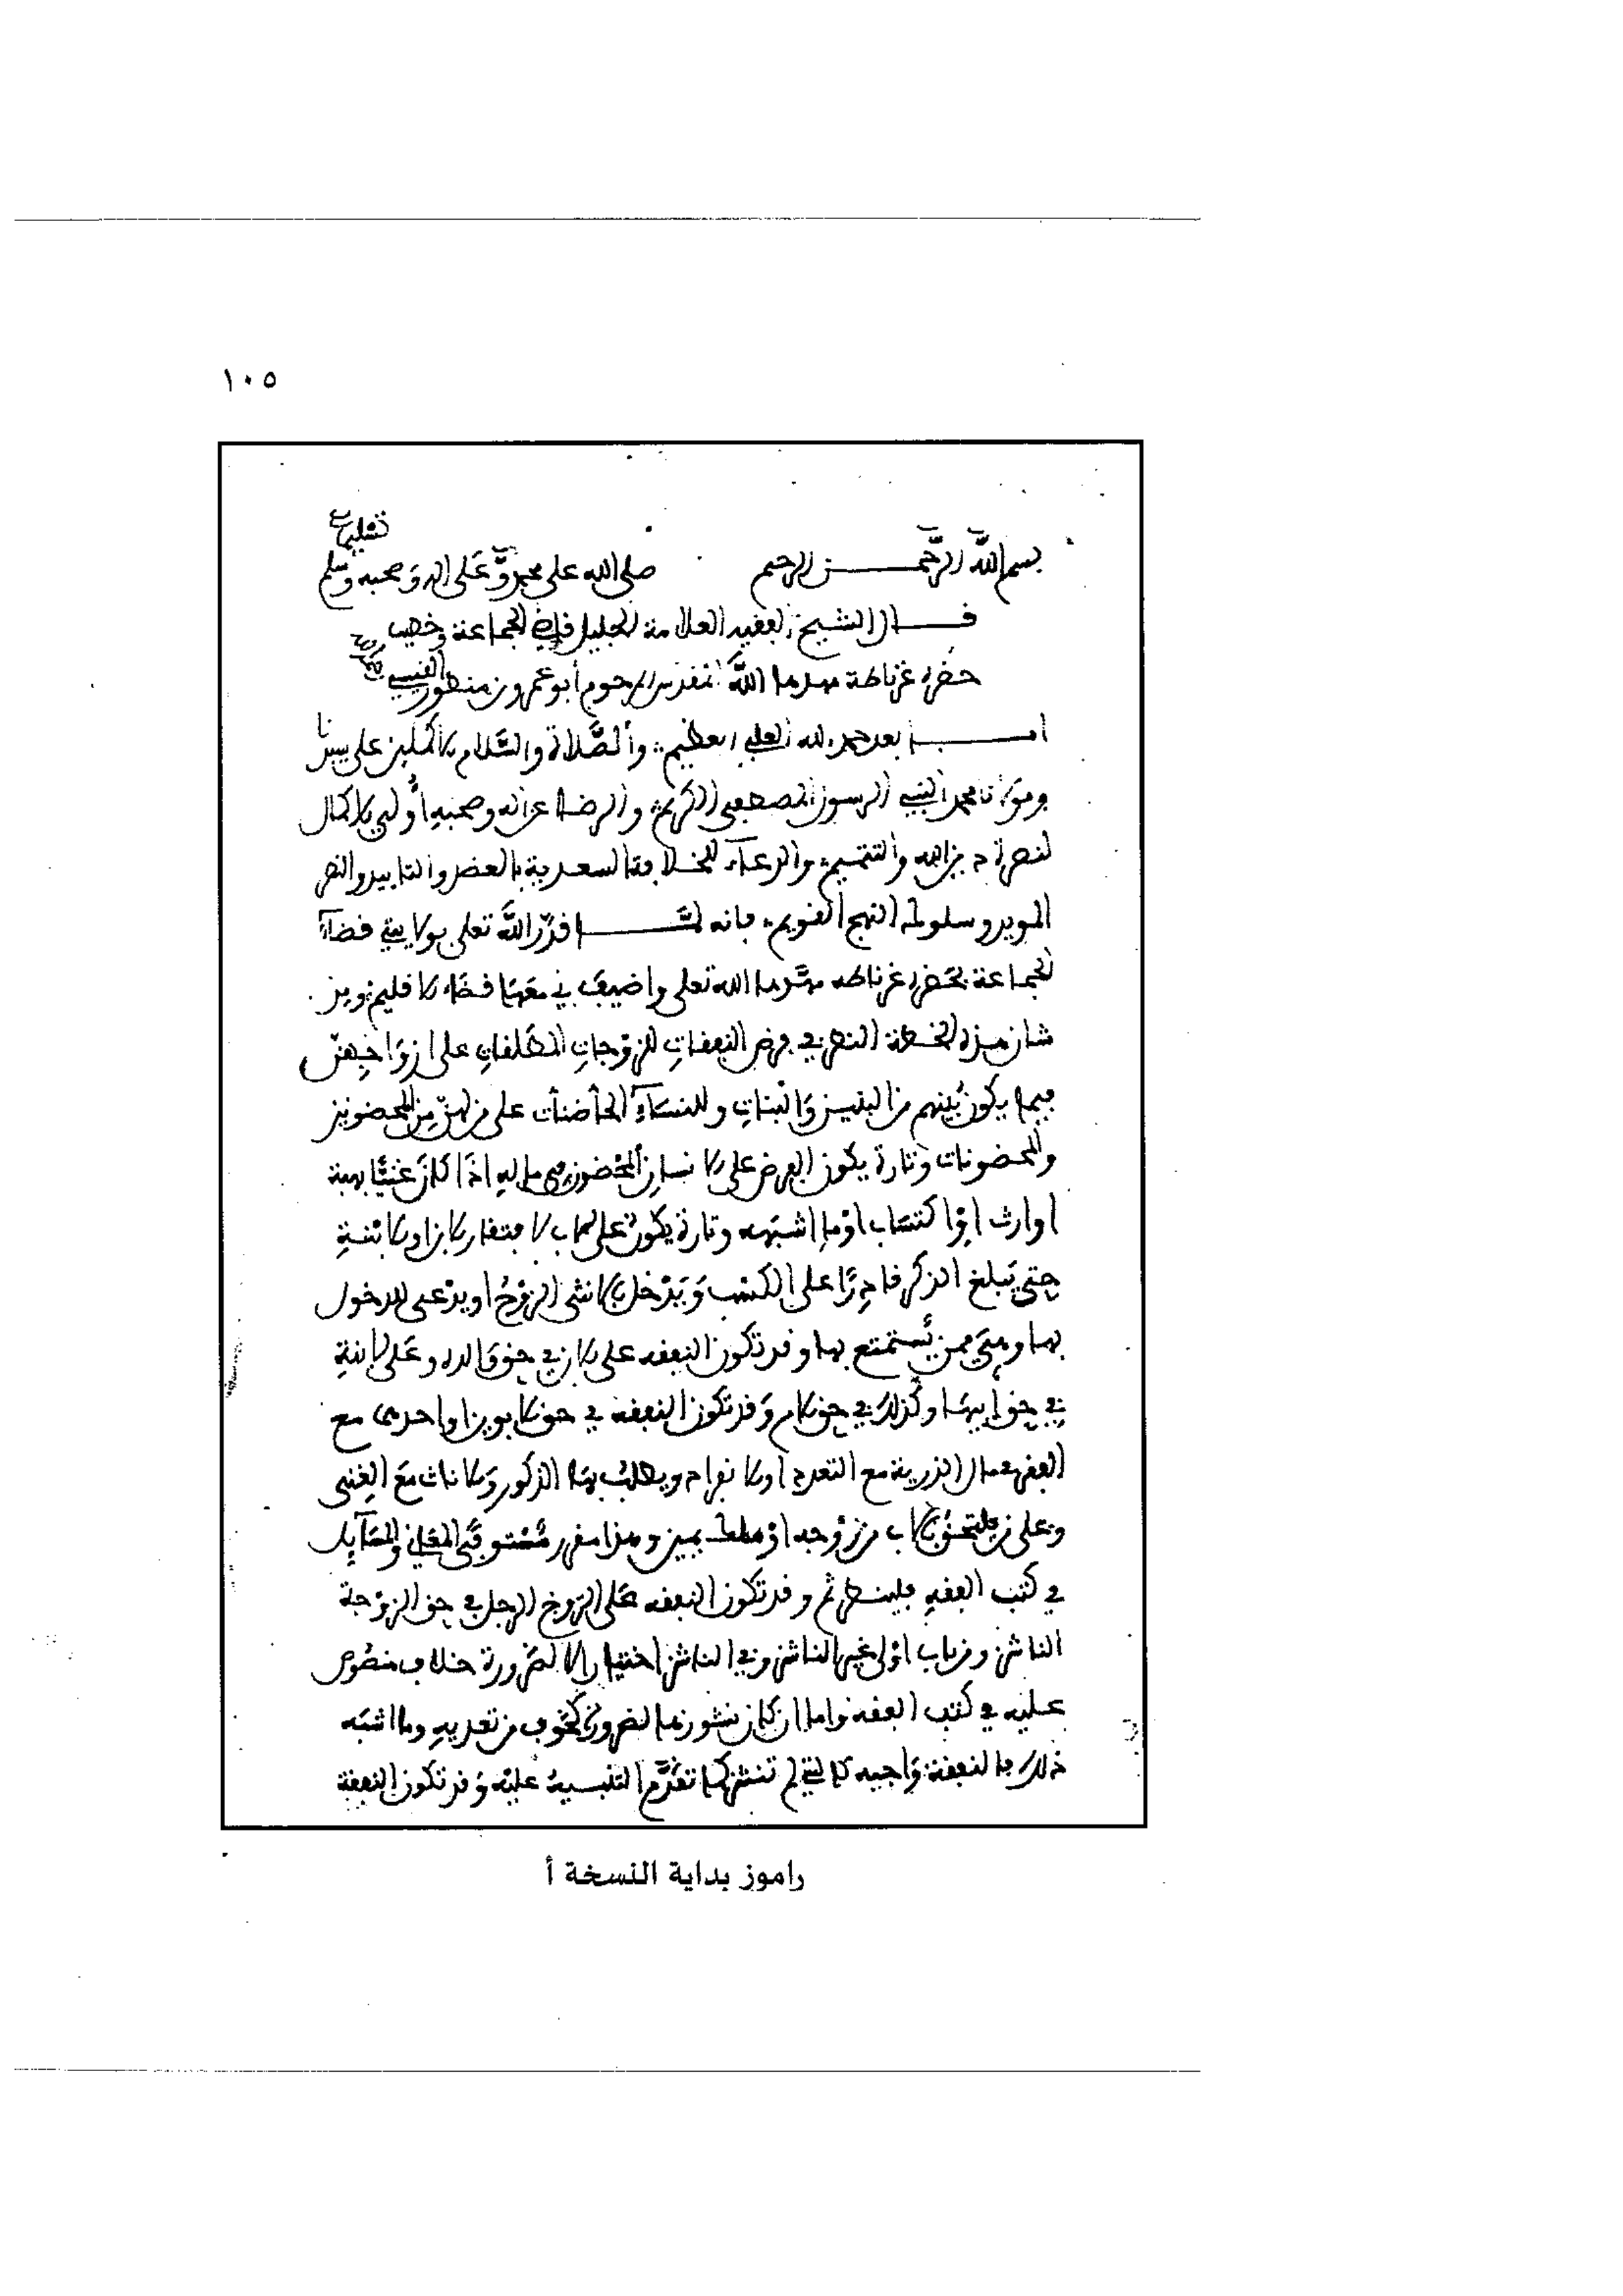 ١٠٥
تسليما
بسم الله الرحمن الرحيم صلى الله على محمد وعلى اله وصحبه وسلم
قال الشيخ الفقيه العلامة الجليل قاضي الجماعة وخطيب
حضرة غرناطة مهدها الله المقدس المرحوم أبو عمرو بن منظور القيسي
اما بعد حمد الله العلي العظيم والصلاة والسلام الاكملين على سيدنا
ومولانا محمد النبي الرسول المصطفى الكريم والرضا عن اله وصحبه أولي الاكمال
لنصرة دين الله والتتميم والدعاء للخلافة السعدية بالعضد والتاييد والنصر
المويد وسلوك النهج القويم فانه لما قدر الله تعلى بولايتي قضاء
الجماعة بحضرة غرناطة مهدها الله تعلى واضيف لي معها قضاء الاقليم ومن
شان هذه الخطة النظر في فرض النفقات للزوجات المطلقات على ازواجهن
فيما يكون بينهم من البنين والبنات وللنساء الحاضنات على من لهن من المحضونين
والمحضونات وتارة يكون الفرض على الانسان المحضون في ماله اذا كان غنيا بهبة
او ارث او اكتساب او ما اشبهه وتارة يكون على الاب لافتقار الابن او الابنة
حتى يبلغ الذكر قادرا على الكسب ويدخل بالانثى الزوج او يدعى للدخول
بها وهي ممن يستمتع بها وقد تكون النفقه على الابن في حق والده وعلى الابنة
في حق ابيها وكذلك في حق الام وقد تكون النفقه في حق الابوين او احدهما مع
الفقر مال الذرية مع التعدد او الانفراد ويطلب بها الذكور والاناث مع الغنى
وعلى من يلتحق بالاب من زوجه او ملك يمين وهذا مقرر مستوفى المعاني والمسايل
في كتب الفقه فلينظر ثم وقد تكون النفقه على الزوج الرجل في حق الزوجة
الناشز ومن باب اولى غير الناشز وفي الناشز اختيارا لا لضرورة خلاف منصوص
عليه في كتب الفقه واما ان كان نشوزها لضرورة كخوف من تعديه وما اشبه
ذلك فالنفقة واجبه كالتي لم تنشز كما تقدم التنبيه عليه وقد تكون النفقة
راموز بداية النسخة أ